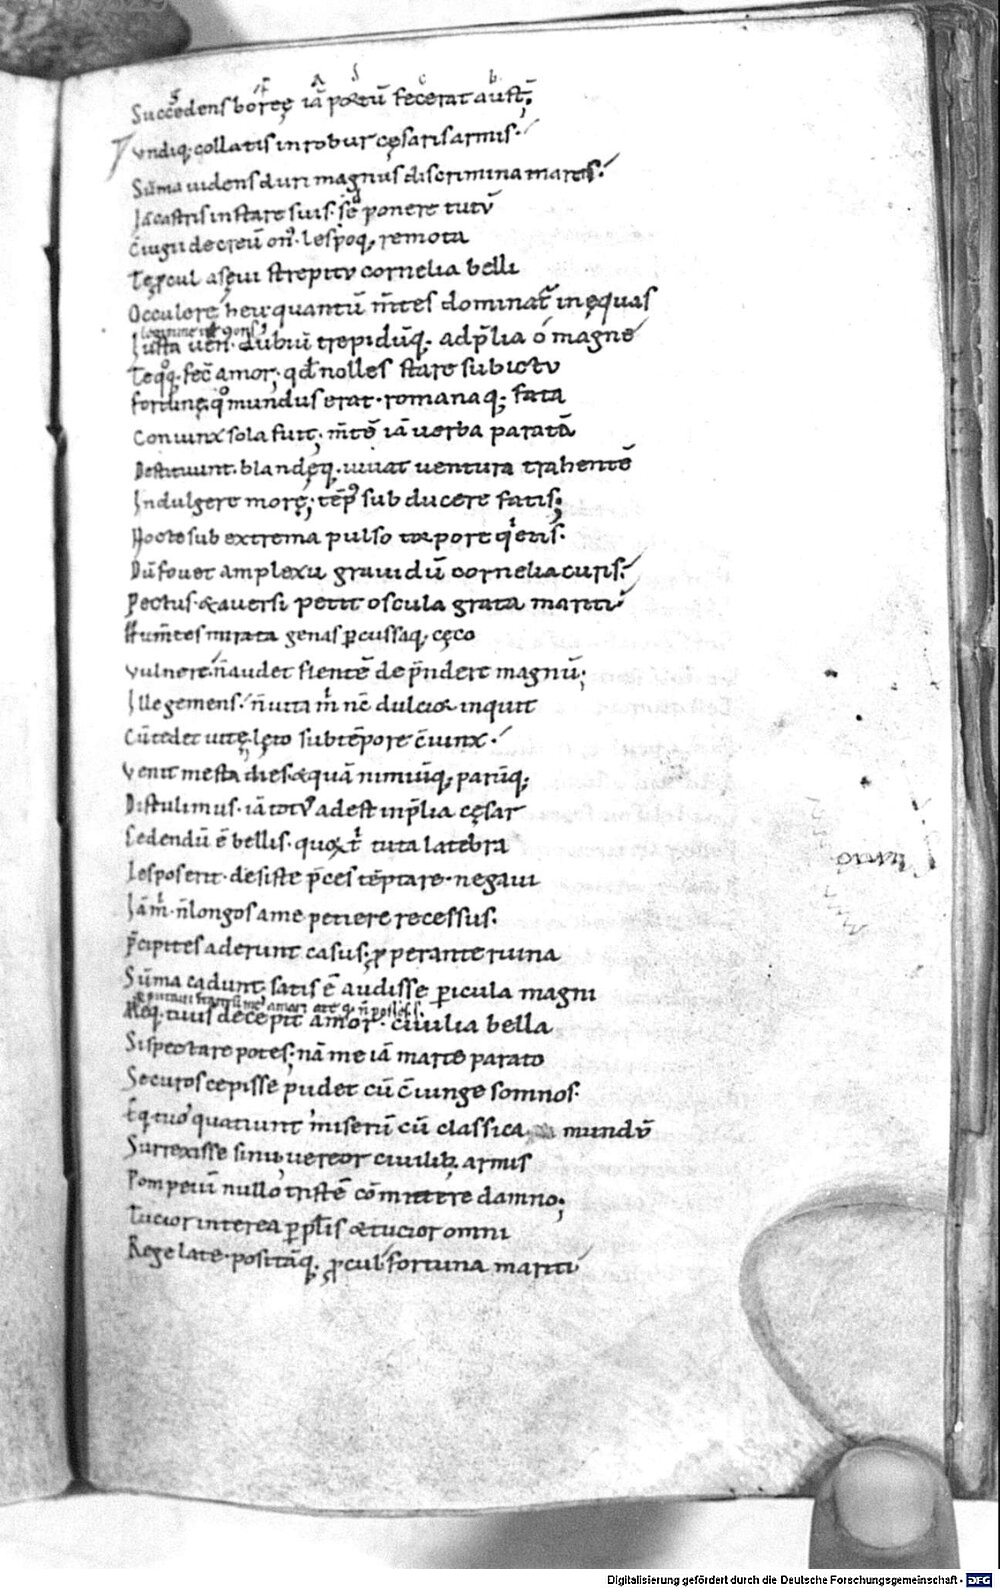 Succedens boreę iā portū fecerat aust̄;
Vndiq; collatis in robur cęsaris armis.
Sūma uidens duri magnus discrimina martis.
Iā castris instare suis. sē ponere tutū
C̄iugii decreū on̄. lesboq; remota
Te p̱cul a sęui strepitu cornelia belli
Occulere. heu quantū m̄tes dominat̄ in ęquas
Iusta uen̄. dubiū trepidūq; ad p̄lia o magne
Te qoq; fec̄ amor. qd̄ nolles stare sub ictu
fortunę. qo mundus erat. romanaq; fata
Coniunx sola fuit. m̄tē iā uerba paratā
Destituunt. blandęq; iuuat uentura trahentē
Indulgere morę; tēp' subducere fatis;
Nocte sub extrema pulso torpore quietis.
Dū fouet amplexu grauidū cornelia curis.
Pectus. & auersi petit oscula grata mariti
Hum̄tes mirata genas p̱cussaq; cęco
Vulnere. n̄ audet flentē dep̄ndere magnū;
Ille gemens. n̄ uita m̄ nc̄ dulcior inquit
Cū tedet uitę. lęto sub tēpore c̄iunx.
Venit mesta dies. & quā nimiūq; parūq;
Distulimus. iā totus adest in p̄lia cęsar
Cedendū ē bellis. quorū t̄ tuta latebra
Lesbos erit. desiste p̄ces tēptare. negaui
Iā m̄. n̄ longos a me petiere recessus.
P̄cipites aderunt casus. p̱perante ruina
Sūma cadunt. satis ē audisse p̱icula magni
Meq; tuus decepit amor. ciuilia bella
Si spectare potes. nā me iā marte parato
Securos cepisse pudet cū c̄iunge somnos.
Eq; tuo quatiunt miserū cū classica mundū
Surrexisse sinu. uereor ciuilib; armis
Pompeiū nullo tristē cōmittere damno;
Tucior interea p̱ pp̄lis & tucior omni
Rege late. positāq; p̱cul fortuna mariti